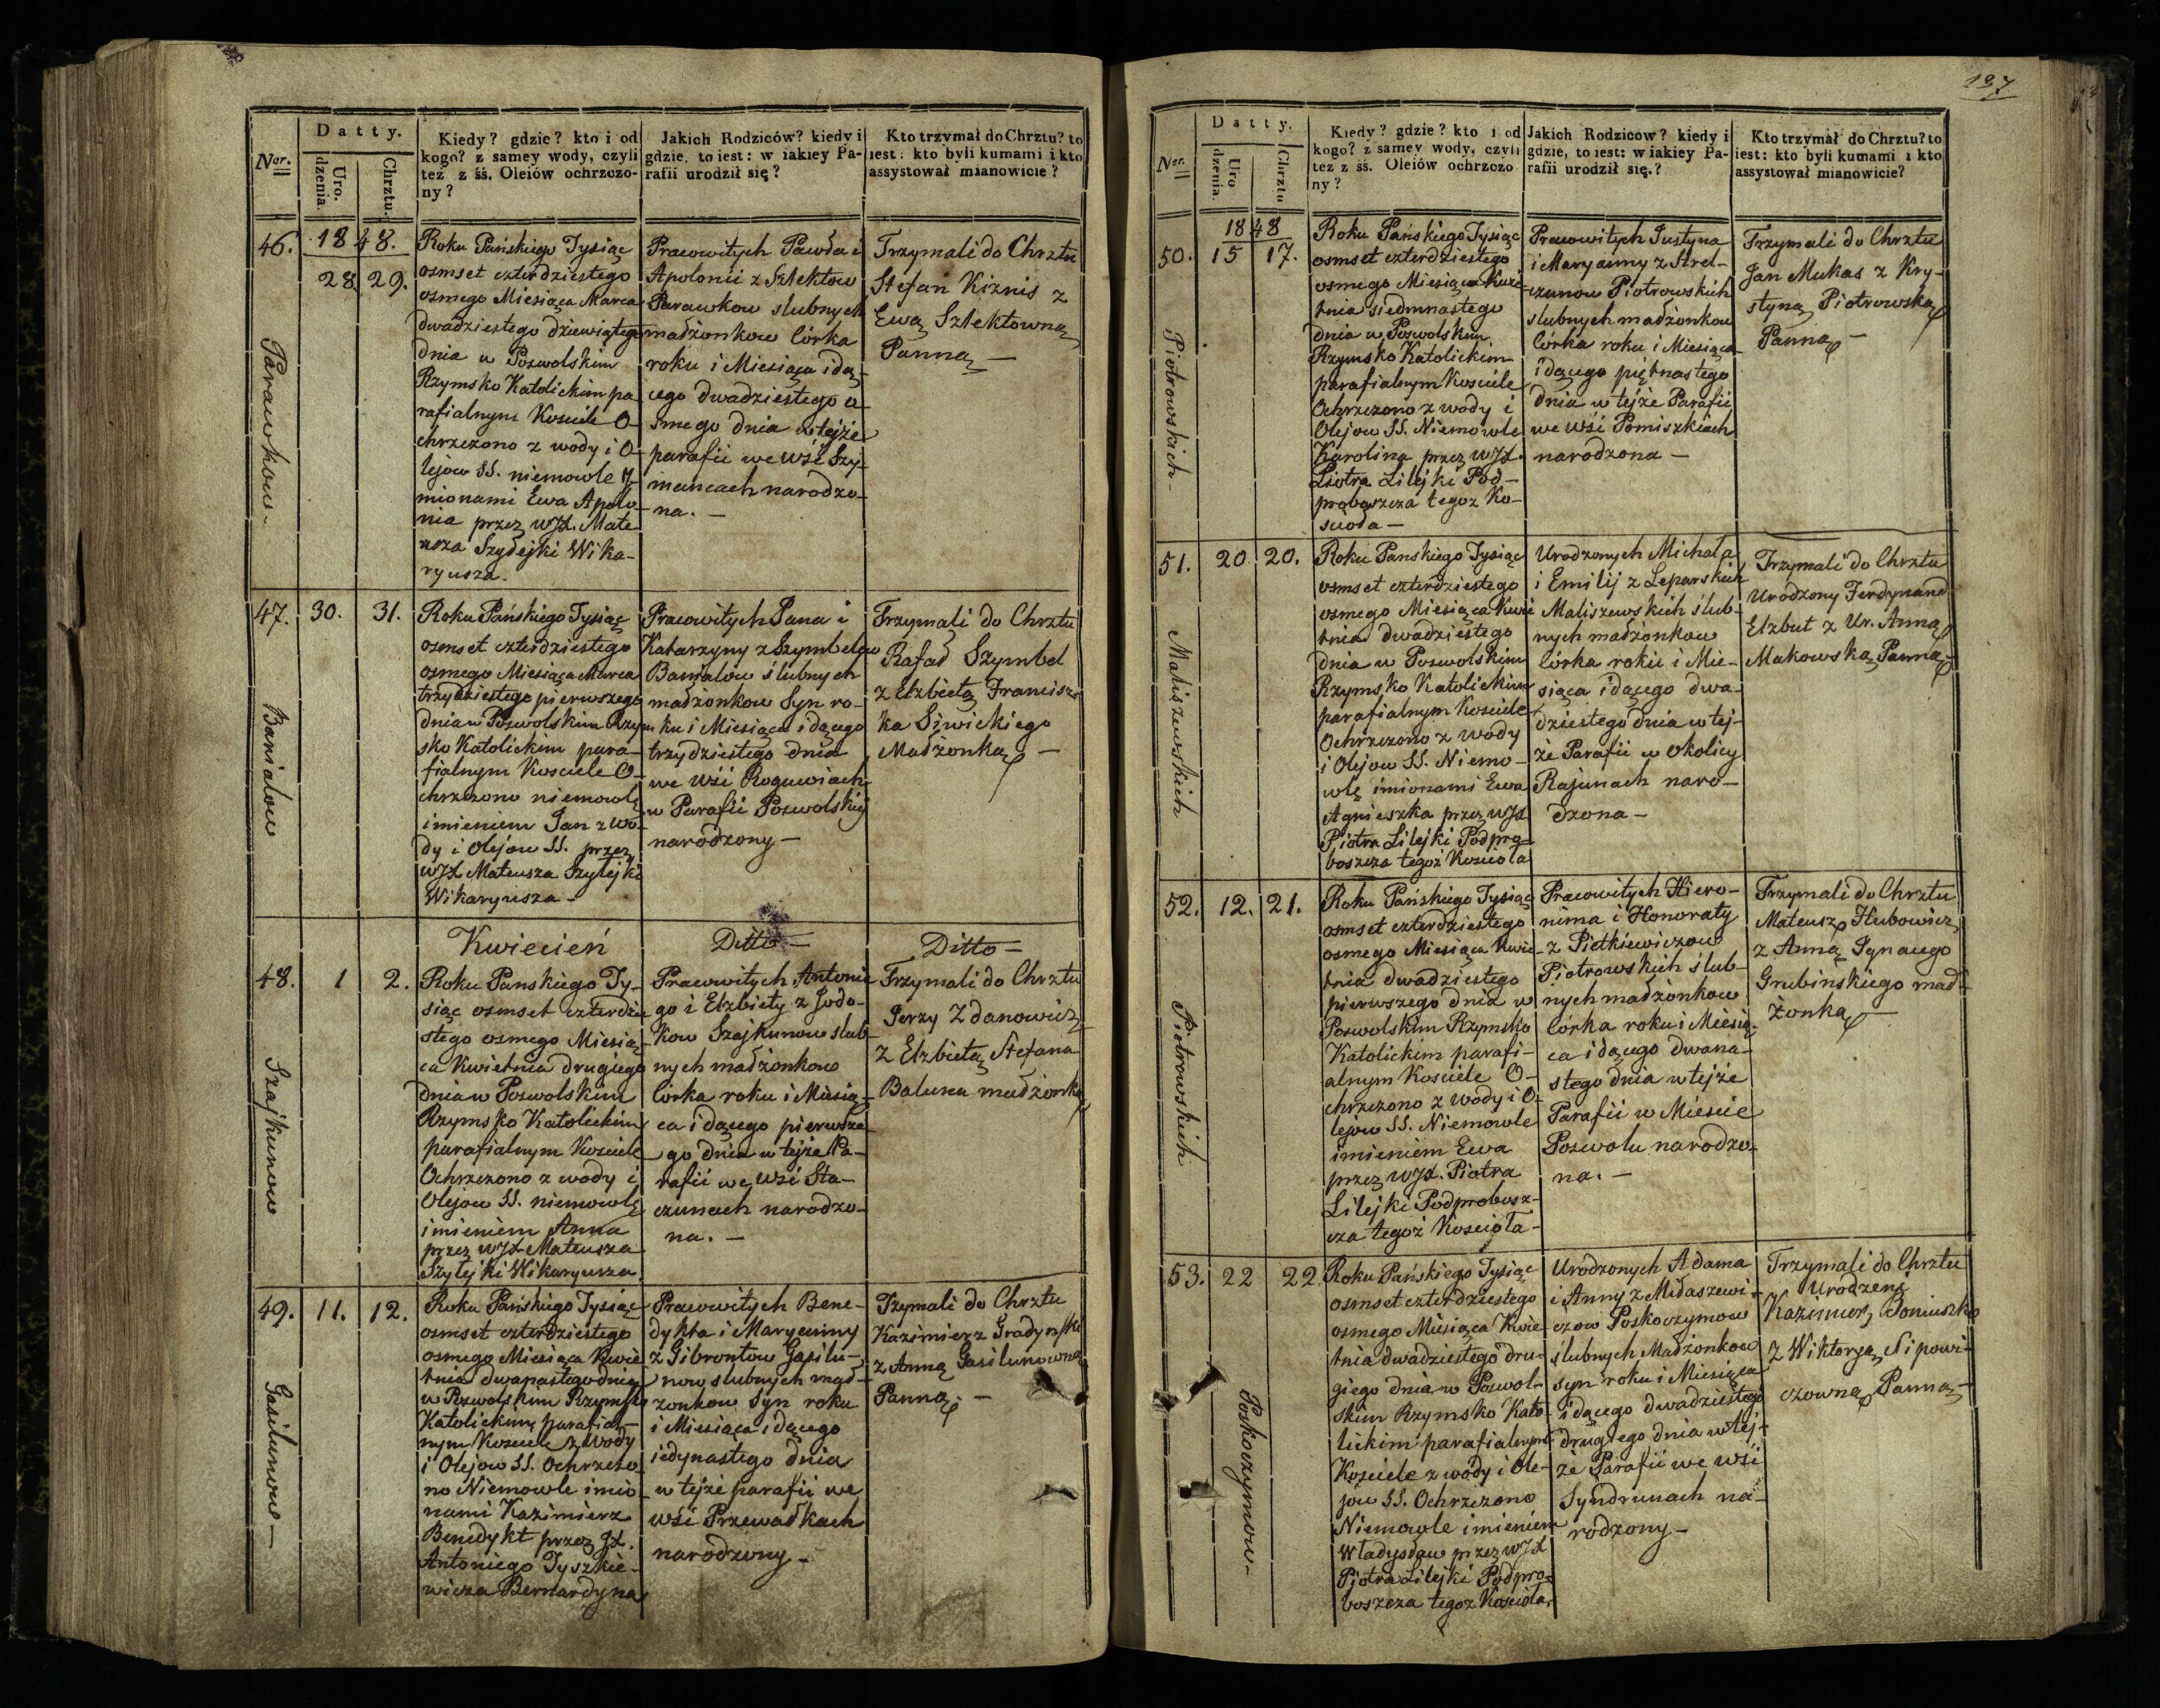 Datty.
Ner.
Uro.
dzenia.
Chrztu.
Kiedy? gdzie? kto i od
kogo? z samey wody, czyli
też z śś. Oleiów ochrzczo-
ny?
Jakich Rodziców? kiedy i
gdzie, to iest: w iakiey Pa-
rafii urodził się?
Kto trzymał do Chrztu? to
iest: kto byli kumami i kto
assystował mianowicie?
46.
1848.
28 29.
Parawkow-
Roku Pańskiego Tysiąc
osmset czterdziestego
osmego Miesiąca Marca
dwadziestego dziewiątego
dnia w Poswolskim
Rzymsko Katolickim pa-
rafialnym Kosciele O-
chrzczono z wody i O-
lejow SS. niemowle I-
mionami Ewa Apolo-
nia przez WJX. Mate-
usza Szylejki Wika-
ryusza.
Pracowitych Pawła i
Apolonii z Szlektow
Parawkow slubnych
małżonkow Córka
roku i Miesiąca idą-
cego dwadziestego o-
smego dnia w tejże
parafii we Wśi Szy-
mancach narodzo-
na. -
Trzymali do Chrztu
Stefan Kiznis z
Ewą Szlektowną
Panną -
47.
30. 31.
Banialow
Roku Pańskiego Tysiąc
osmset czterdziestego
osmego Miesiąca Marca
trzydziestego pierwszego
dnia w Poswolskim Rzym-
sko Katolickim para-
fialnym Kosciele O-
chrzczono niemowlę
imieniem Jan z wo-
dy i Olejow SS. przez
WJX Mateusza Szylejki
Wikaryusza -
Pracowitych Jana i
Katarzyny z Szymbelow
Banialow ślubnych
małżonkow Syn ro-
ku i Miesiąca idącego
trzydziestego dnia
we Wśi Roguwiach
w Parafii Poswolskiej
narodzony -
Trzymali do Chrztu
Rafał Szymbel
z Elzbietą Francisz-
ka Siwickiego
Małżonką -
Kwiecień
Ditto -
Ditto -
48.
1 2.
Szajkunow
Roku Panskiego Ty-
siąc osmset czterdzie-
stego osmego Miesią-
ca Kwietnia drugiego
dnia w Poswolskim
Rzymsko Katolickim
parafialnym Kosciele
Ochrzczono z wody i
Olejow SS. niemowlę
imieniem Anna
przez WJX Mateusza
Szylejki Wikaryusza
Pracowitych Antonie-
go i Elzbiety z Jodo-
kow Szajkunow slub-
nych małżonkow
Córka roku i Miesią-
ca idącego pierwsze-
go dnia w tejże Pa-
rafii we Wśi Sta-
czunach narodzo-
na. -
Trzymali do Chrztu
Jerzy Zdanowicz
z Elzbietą Stefana
Baluna małżonką
49.
11. 12.
Gasilunow -
Roku Pańskiego Tysiąc
osmset czterdziestego
osmego Miesiąca Kwie-
tnia dwanastego dnia
w Poswolskim Rzymsko
Katolickim parafial-
nym Kosciele z Wody
i Olejow SS. Ochrzczo-
no Niemowle imio-
nami Kazimierz
Benedykt przez JX.
Antoniego Tyszkie-
wicza Bernardyna
Pracowitych Bene-
dykta i Maryanny
z Gibrontow Gasilu-
now slubnych mał-
zonkow Syn roku
i Miesiąca idącego
iedynastego dnia
w tejże parafii we
Wśi Przewałkach
narodzony -
Trzymali do Chrztu
Kazimierz Gradynski
z Anną Gasilunowną
Panną. -
197
Datty.
Ner.
Uro
dzenia.
Chrztu
Kiedy? gdzie? kto i od
kogo? z samey wody, czyli
też z śś. Oleiów ochrzczo
ny?
Jakich Rodziców? kiedy i
gdzie, to iest: w iakiey Pa-
rafii urodził się.?
Kto trzymał do Chrztu? to
iest: kto byli kumami i kto
assystował mianowicie?
1848
50. 15 17.
Piotrowskich.
Roku Pańskiego Tysiąc
osmset czterdziestego
osmego Miesiąca Kwie-
tnia siedmnastego
dnia w Poswolskim
Rzymsko Katolickim
parafialnym Kosciele
Ochrzczono z wody i
Olejow SS. Niemowle
Karolina przez WJX.
Piotra Lilejki Pod-
proboszcza tegoż Ko-
scioła -
Pracowitych Justyna
i Maryanny z Strel-
czunow Piotrowskich
slubnych małżonkow
Córka roku i Miesiąca
idącego piętnastego
dnia w tejże Parafii
we Wśi Pomiszkiach
narodzona -
Trzymali do Chrztu
Jan Mukas z Kry-
styną Piotrowską
Panną -
51. 20 20.
Maliszewskich
Roku Panskiego Tysiąc
osmset czterdziestego
osmego Miesiąca Kwie
tnia dwadziestego
dnia w Poswolskim
Rzymsko Katolickim
parafialnym Kosciele
Ochrzczono z wody
i Olejow SS. Niemo-
wlę imionami Ewa
Agnieszka przez WJX
Piotra Lilejki Podpro-
boszcza tegoż Kościoła
Urodzonych Michała
i Emilij z Leparskich
Maliszewskich ślub-
nych małżonkow
Córka roku i Mie-
siąca idącego dwa-
dziestego dnia w tej-
że Parafii w Okolicy
Rajunach naro-
dzona -
Trzymali do Chrztu
Urodzony Ferdynand
Elzbut z Ur. Anną
Makowską Panną -
52. 12. 21.
Piotrowskich
Roku Pańskiego Tysiąc
osmset czterdziestego
osmego Miesiąca Kwie-
tnia dwadziestego
pierwszego dnia w
Poswolskim Rzymsko
Katolickim parafi-
alnym Kosciele O-
chrzczono z Wody i O-
lejow SS. Niemowle
imieniem Ewa
przez WJX. Piotra
Lilejki Podprobosz-
cza tegoż Kościoła -
Pracowitych Hiero-
nima i Honoraty
z Pietkiewiczow
Piotrowskich ślub-
nych małżonkow
Córka roku i Miesią-
ca idącego dwana-
stego dnia w tejże
Parafii w Miescie
Poswolu narodzo-
na. -
Trzymali do Chrztu
Mateusz Hubowicz
z Anną Ignacego
Grubinskiego mał-
żonką -
53. 22 22
Poskoczymow -
Roku Pańskiego Tysiąc
osmset czterdziestego
osmego Miesiąca Kwie-
tnia dwadziestego dru-
giego dnia w Poswol-
skim Rzymsko Kato-
lickim parafialnym
Kosciele z wody i Ole-
jow SS. Ochrzczono
Niemowle imieniem
Władysław przez WJX
Piotra Lilejki Podpro-
boszcza tegoż Kościoła.
Urodzonych Adama
i Anny z Midaszewi-
czow Poskoczymow
ślubnych Małżonkow
syn roku i Miesiąca
idącego dwadziestego
drugiego dnia w tej-
że Parafii we wśi
Syndrunach na-
rodzony -
Trzymali do Chrztu
Urodzeni
Kazimierz Poniuszko
z Wiktorją Nipowi-
czowną Panną -